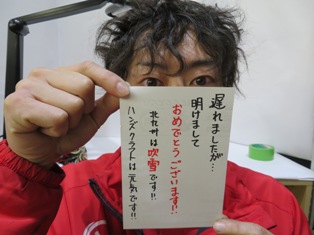 遅れましたが…
明けまして
おめでとうございます!!
北九州は吹雪です!!
ハンズクラフトは元気です!!